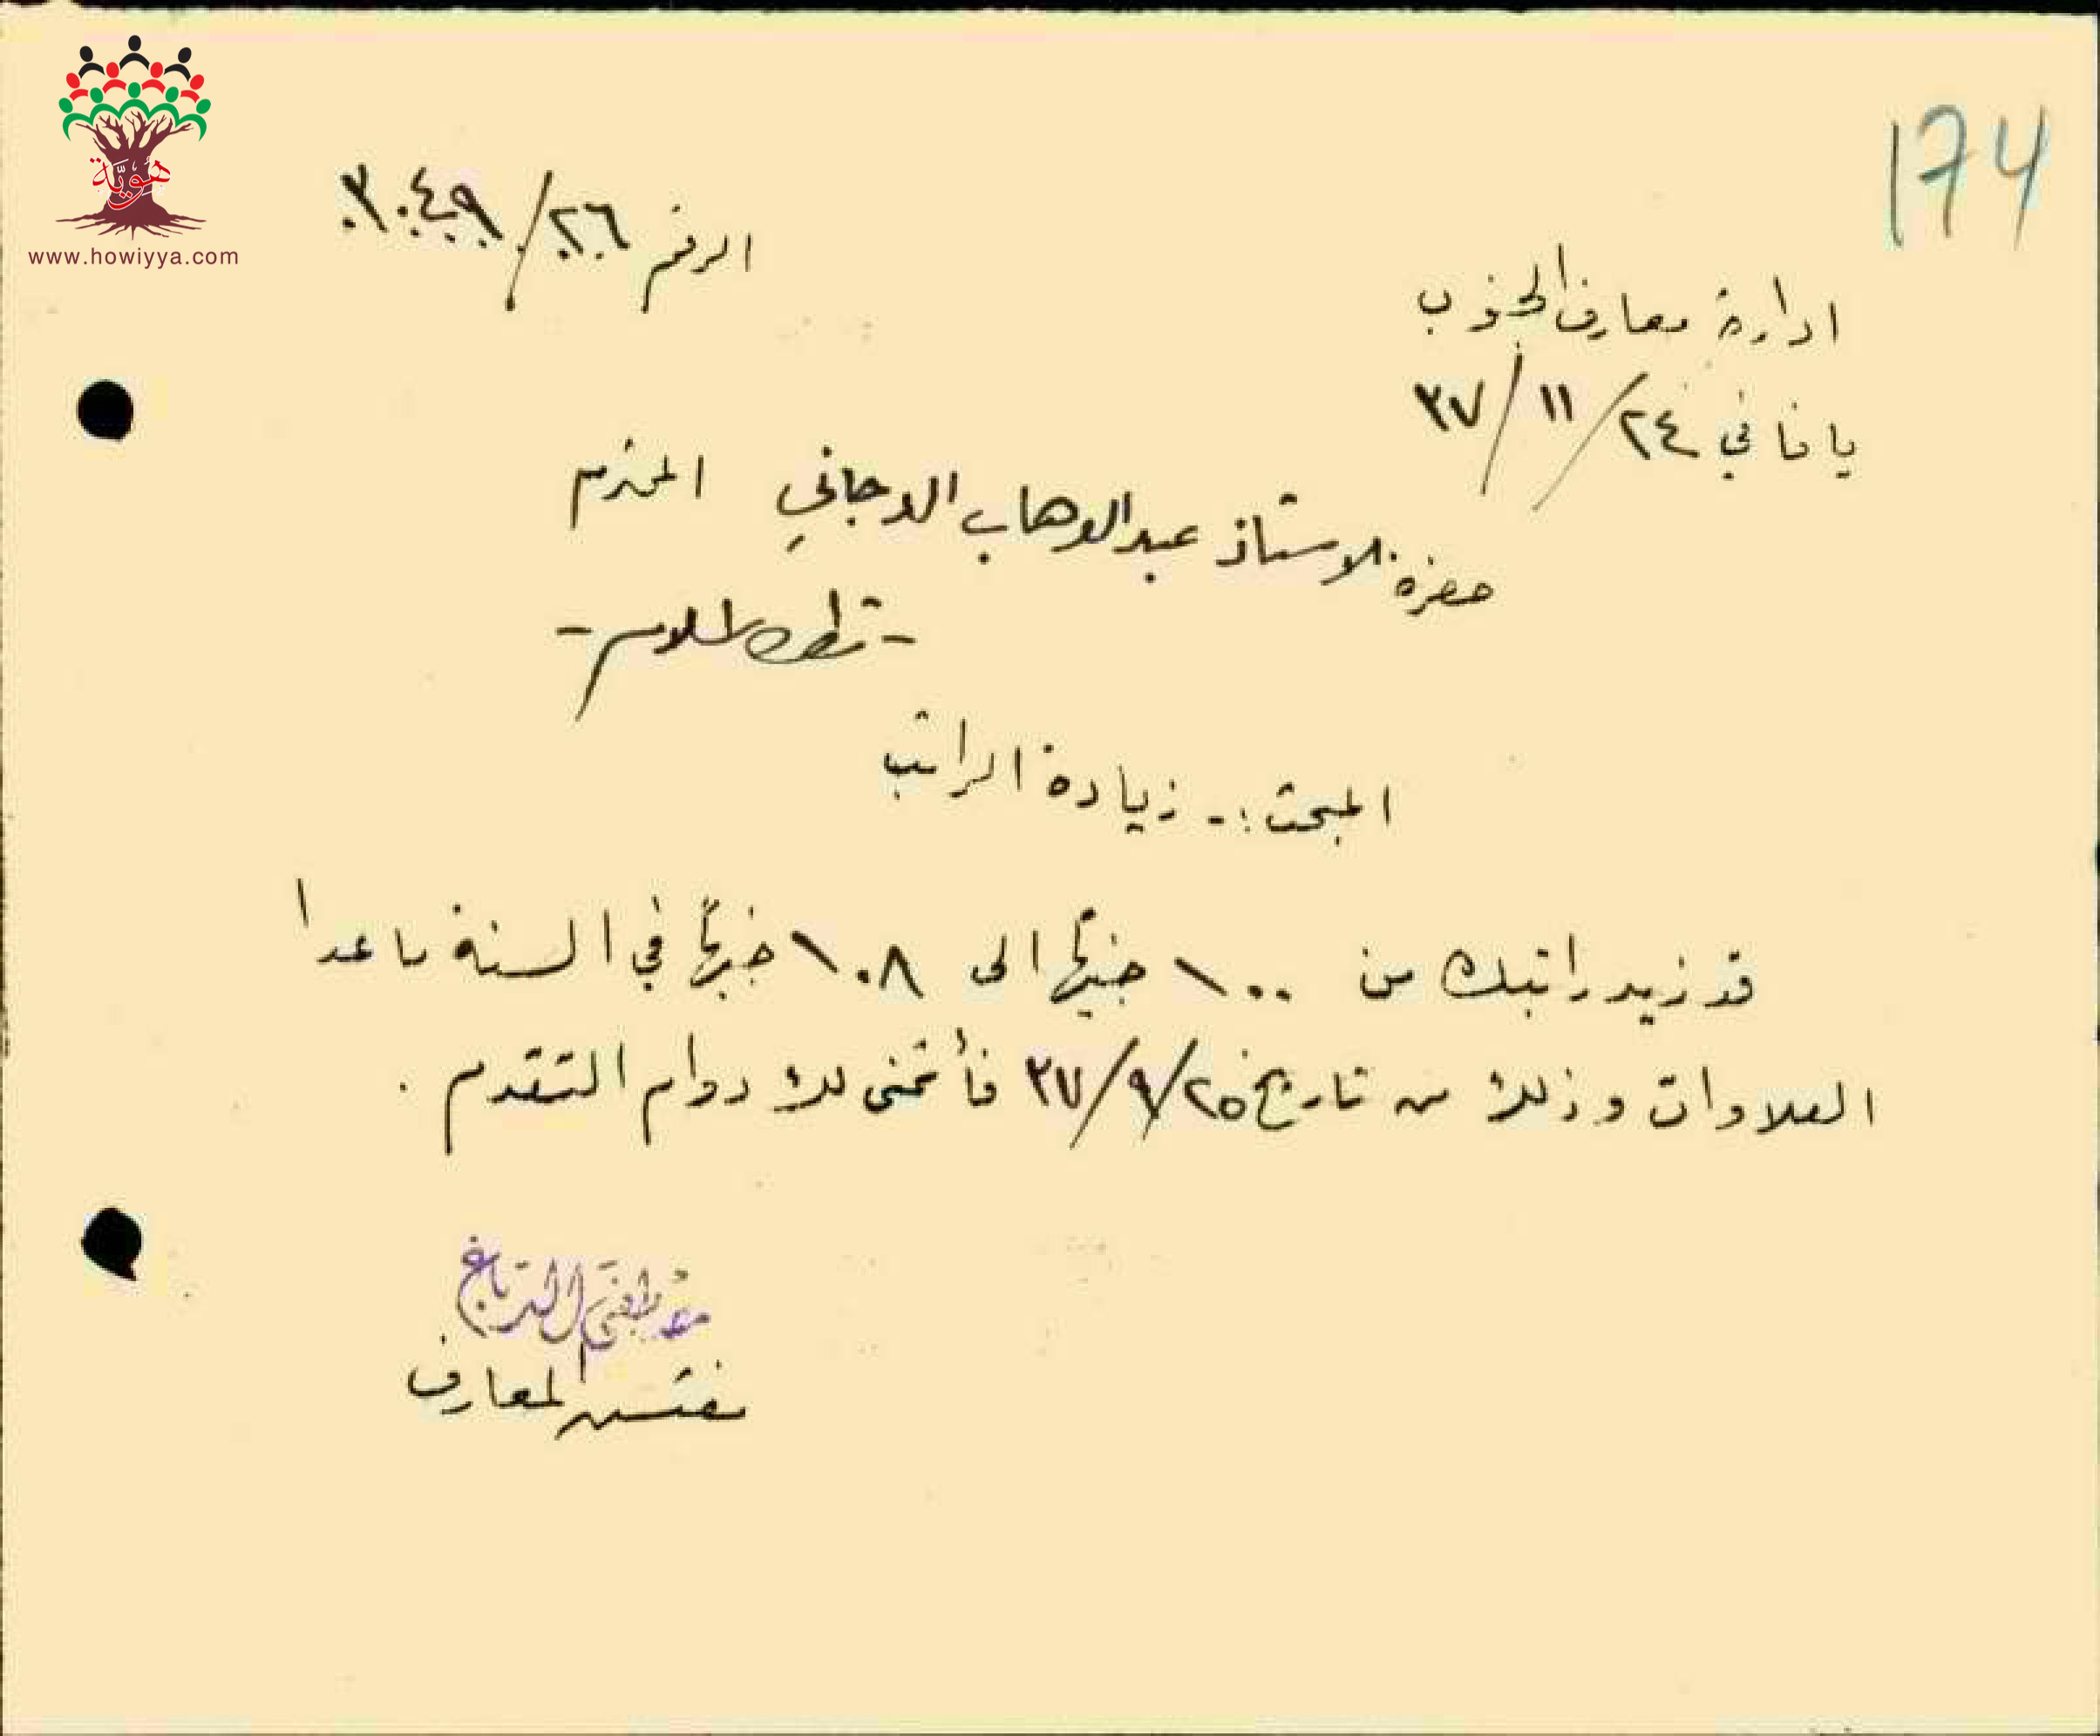 174
هوية
www.howiyya.com
الرقم ٢٦/٣٠٤٩
ادارة معارف الجنوب
يافا في ٢٤/١١/٣٧
حضرة الاستاذ عبد الوهاب الدجاني المحترم
المبحث :- زيادة الراتب
قد زيد راتبك من ١٠٠ جنيهاً الى ١٠٨ جنيهاً في السنة ما عدا
العلاوات وذلك من تاريخ ٢٥/٩/٣٧ فأتمنى لك دوام التقدم .
مصطفى الدباغ
مفتش المعارف